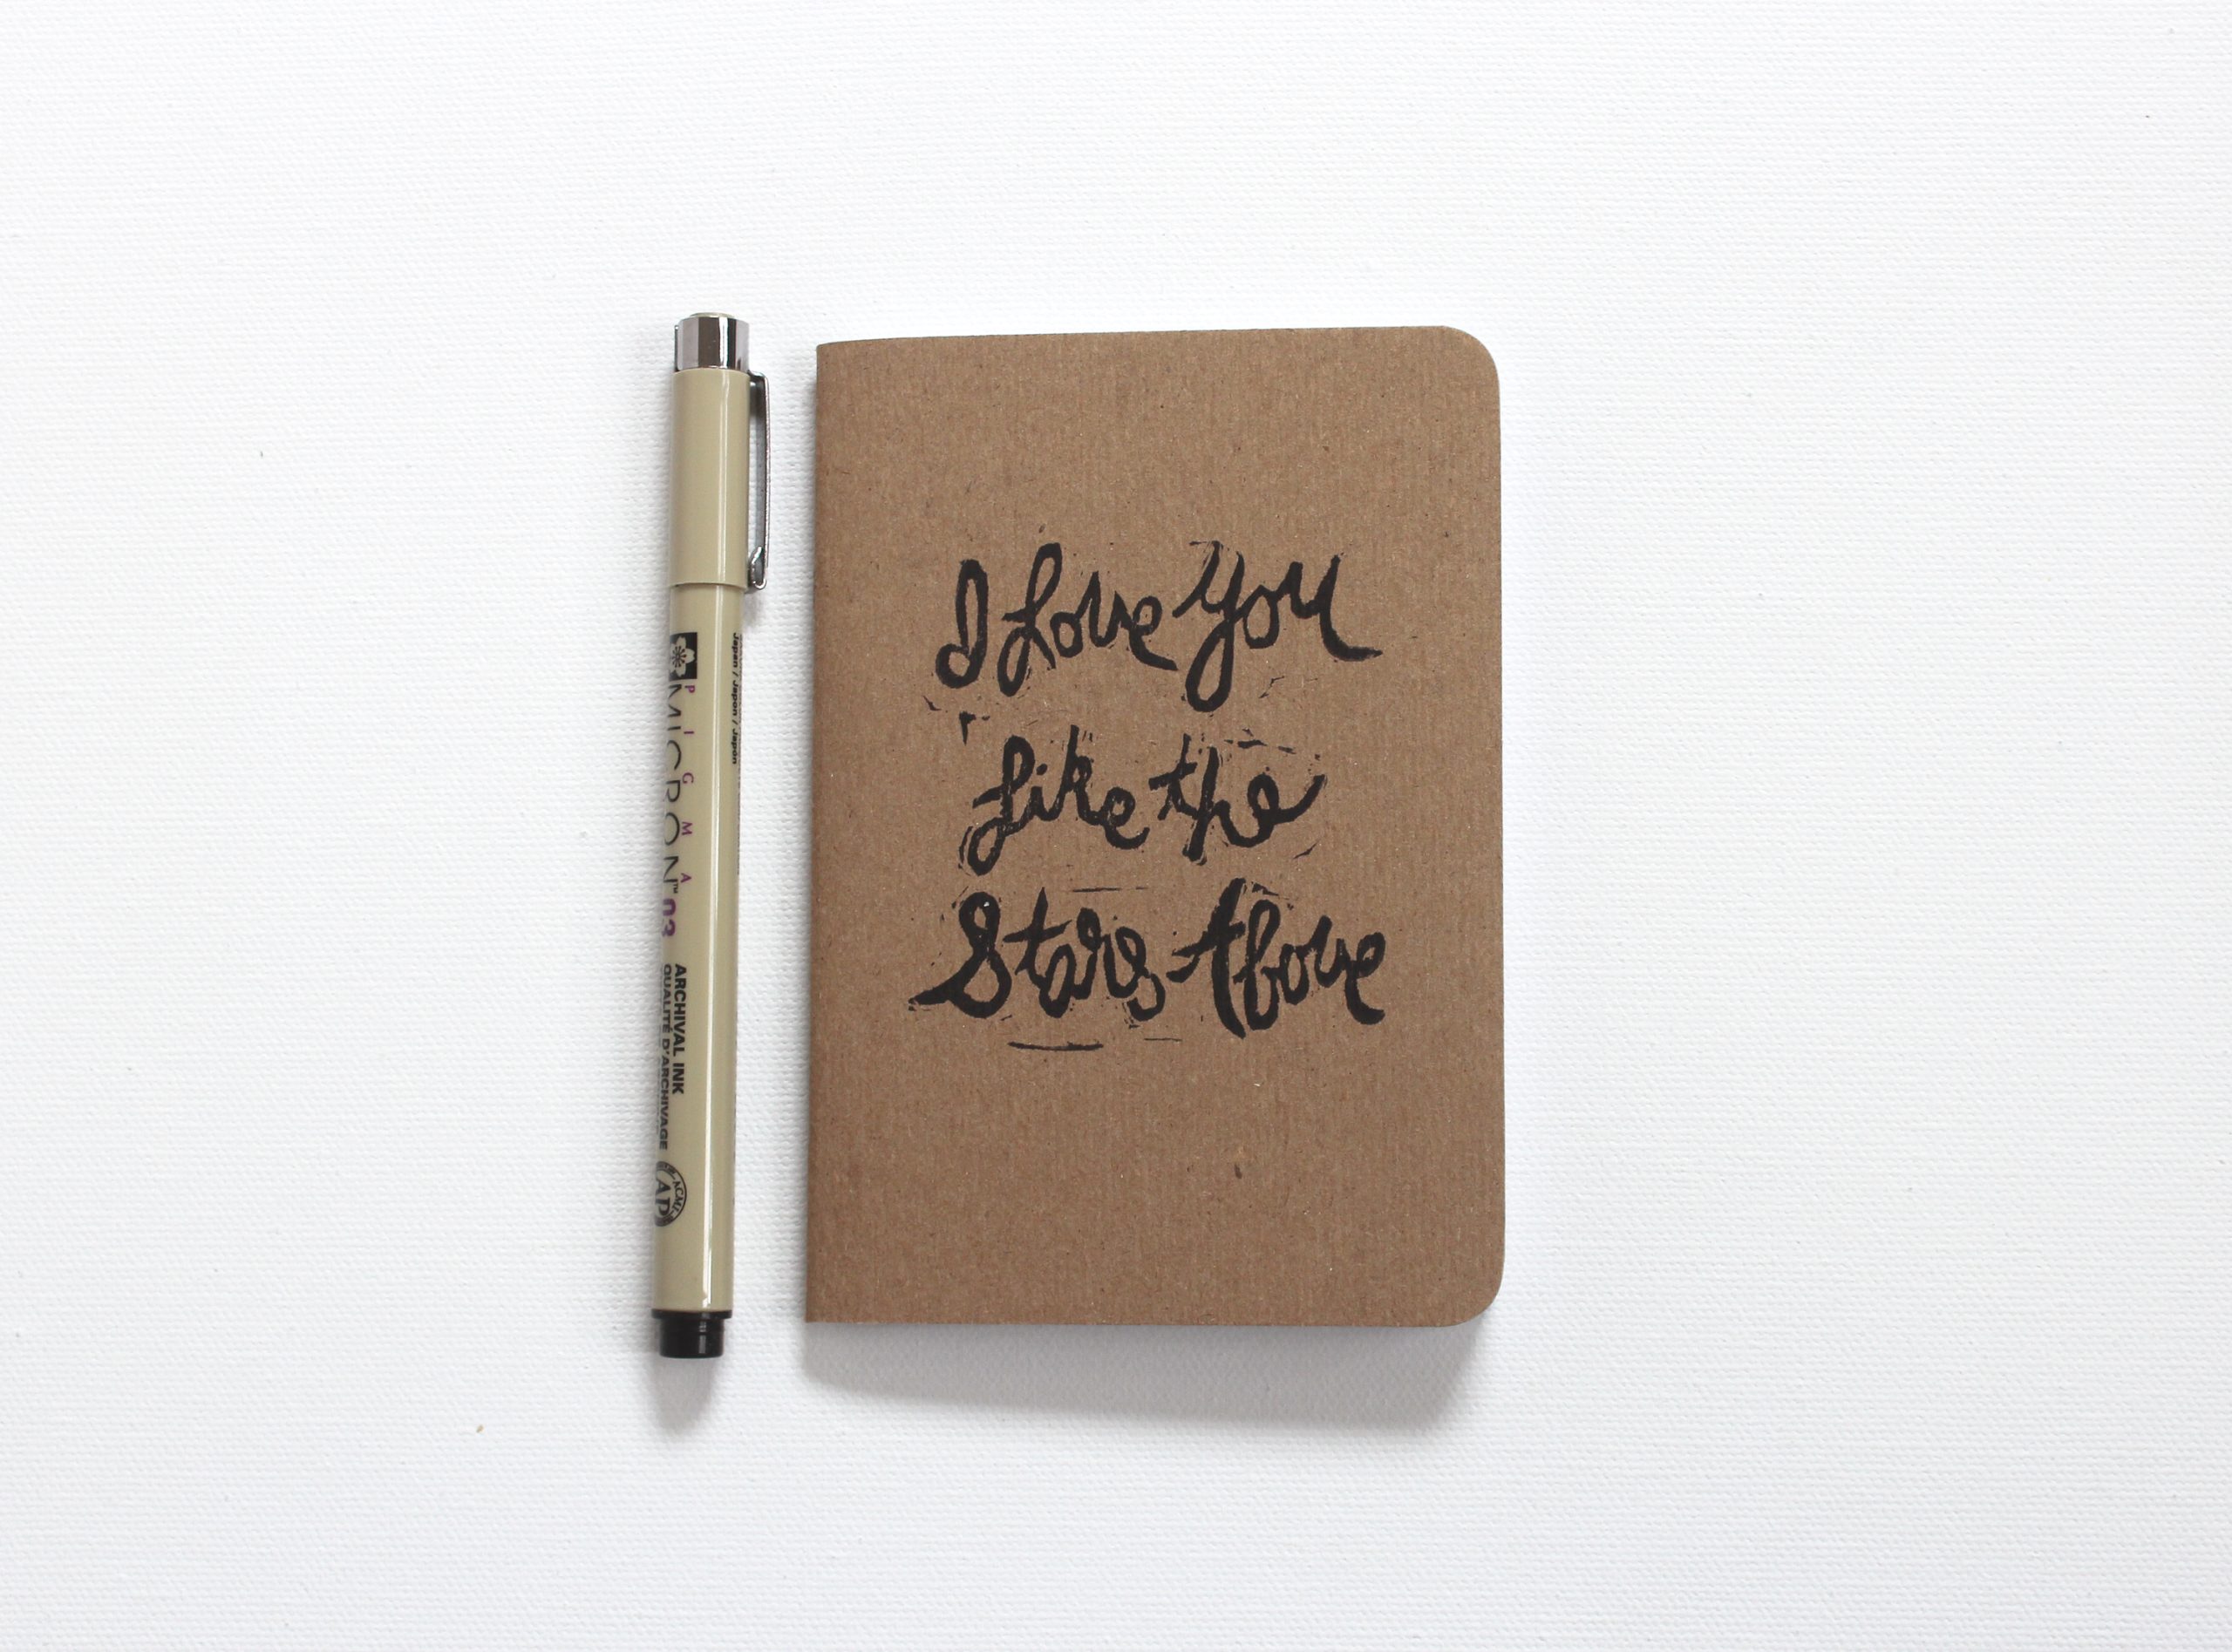 I Love You
Like the
Stars Above
Japan / Japon / Japón
PIGMA
MICRON™ 03
ARCHIVAL INK
QUALITÉ D'ARCHIVAGE
ACMI
AP